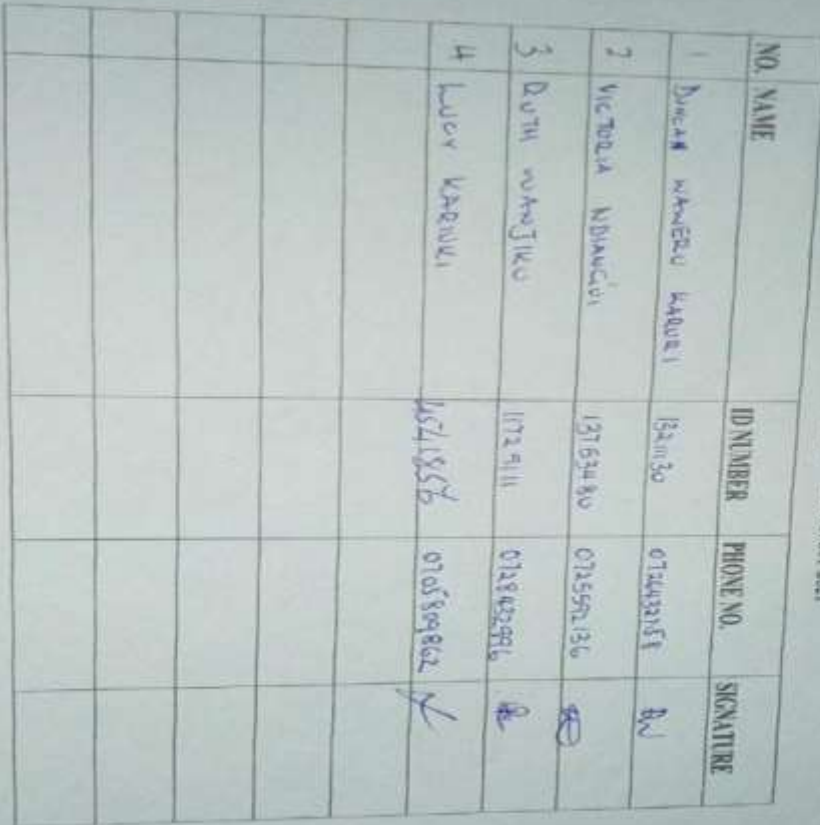 NO. NAME ID NUMBER PHONE NO. SIGNATURE
1 DUNCAN WAWERU KARIUKI 13211130 0726432758 DW
2 VICTORIA NDIANGUI 13763480 0725592136
3 RUTH WANJIKU 11729111 0728432996
4 LUCY KARIUKI 0705809862